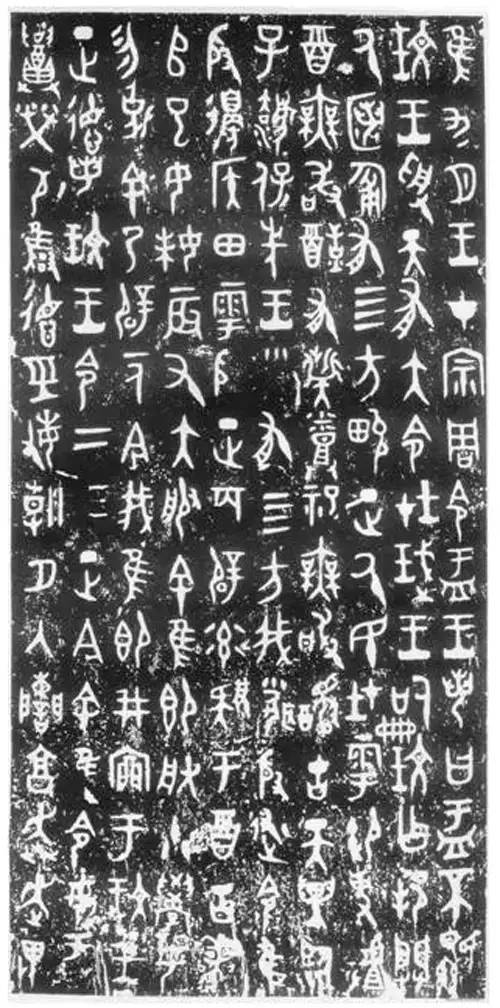 隹九月王才宗周令盂王若曰盂不顯
玟王受天有大令在珷王嗣玟乍邦闢
氒匿匍有四方畯正氒民在雩御事
酉無敢酖有祡蒸祀無敢醻古天異臨
子法保先王有四方我聞殷述令隹
殷邊侯田雩殷正百辟率肄于酉古喪
𠂤已女妹辰又大服余隹即朕小學女
勿余乃辟一人今我隹即井㐭于玟王
正德若玟王令二三正今余隹令女盂
召榮敬雍德經敏朝夕入讕享奔走畏